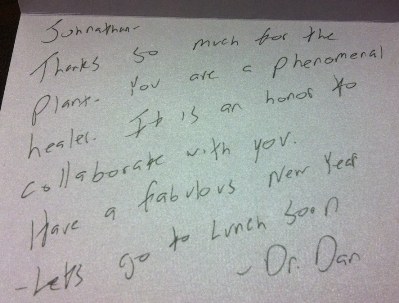 Johnathan-
Thanks so much for the
Plant. You are a phenomenal
healer. It is an honor to
collaborate with you.
Have a fabulous New Year
-Lets go to Lunch soon
- Dr. Dan